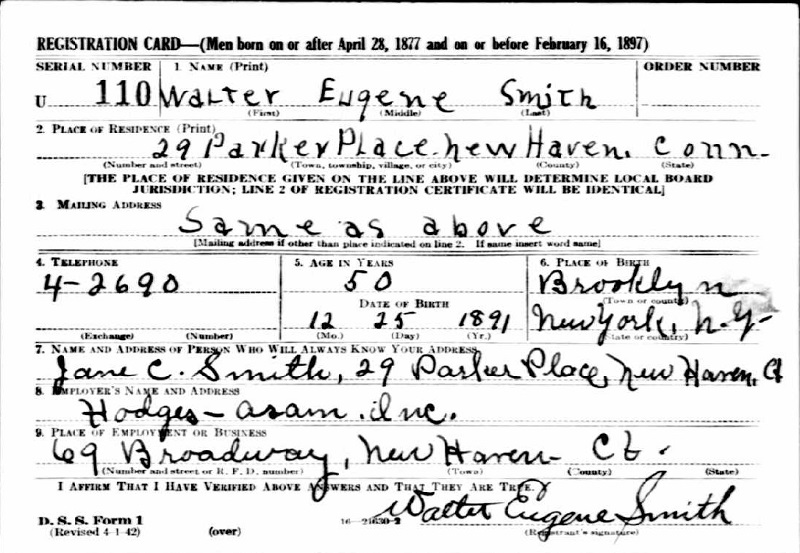 REGISTRATION CARD—(Men born on or after April 28, 1877 and on or before February 16, 1897)
SERIAL NUMBER 1. NAME (Print) ORDER NUMBER
U 110 Walter Eugene Smith
(First) (Middle) (Last)
2. PLACE OF RESIDENCE (Print)
29 Parker Place New Haven, Conn.
(Number and street) (Town, township, village, or city) (County) (State)
[THE PLACE OF RESIDENCE GIVEN ON THE LINE ABOVE WILL DETERMINE LOCAL BOARD
JURISDICTION; LINE 2 OF REGISTRATION CERTIFICATE WILL BE IDENTICAL]
3. MAILING ADDRESS
Same as above
[Mailing address if other than place indicated on line 2. If same insert word same]
4. TELEPHONE 5. AGE IN YEARS 6. PLACE OF BIRTH
4-2690 50 Brooklyn
DATE OF BIRTH (Town or county)
12 25 1891 New York, N.Y.
(Exchange) (Number) (Mo.) (Day) (Yr.) (State or country)
7. NAME AND ADDRESS OF PERSON WHO WILL ALWAYS KNOW YOUR ADDRESS
Jane C. Smith, 29 Parker Place, New Haven, Ct
8. EMPLOYER'S NAME AND ADDRESS
Hodges-Asam. Inc.
9. PLACE OF EMPLOYMENT OR BUSINESS
69 Broadway, New Haven - Ct.
(Number and street or R. F. D. number) (Town) (County) (State)
I AFFIRM THAT I HAVE VERIFIED ABOVE ANSWERS AND THAT THEY ARE TRUE.
Walter Eugene Smith
D. S. S. Form 1
(Revised 4-1-42) (over) 16-21630-2 (Registrant's signature)